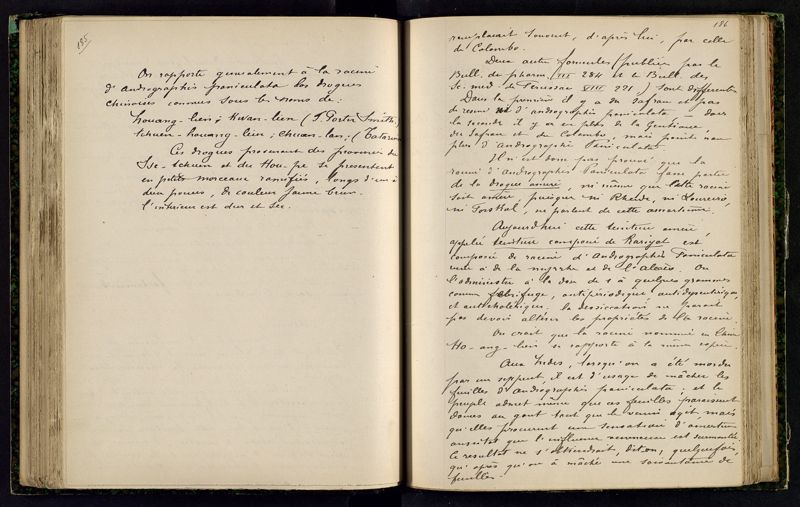 185
On rapporte généralement à la racine
d'Andrographis paniculata les drogues
chinoises connues sous le noms de:
Houang-lien; Kwan-lien (F. Porter Smith;)
tchuen-houang-lien; chuan-lan; (Tatarinov
Ces drogues provenant des provinces du
Sse-tchuen et du Hou-pe se présentent
en petits morceaux ramifiés, longs d'un à
deux pouces, de couleur jaune brun.
l'intérieur est dur et sec.
186
remplacait souvent, d'après lui, par celle
de Colombo.
Deux autres formules (publiées par le
Bull. de pharm. III 284 et le Bull. des
Sc. med. de Ferussac VIII 221) sont différentes
Dans la première il y a du safran et pas
de racine d'andrographis paniculata — dans
la seconde il y a en plus de la Gentiane,
du safran et du Colombo, mais point non
plus d'Andrographis Paniculata.
Il n'est donc pas prouvé que la
racine d'Andrographis Paniculata fasse partie
de la drogue amère, ni même que cette racine
soit amère puisque ni Rheede, ni Loureiro,
ni Forskal, ne parlent de cette amertume.
Aujourd'hui cette teinture amère,
appelée teinture composée de Kariyat est
composée de racine d'Andrographis Paniculata
unie à de la myrrhe et de l'aloès. On
l'administre à la dose de 1 à quelques grammes
comme fébrifuge, antipériodique, antidysentérique,
et anticholérique, la dessiccation ne paraît
pas devoir altérer les propriétés de la racine.
On croit que la racine nommée en Chine
Ho-ang-lien se rapporte à la même espèce.
Aux Indes, lorsqu'on a été mordu
par un serpent, il est d'usage de mâcher les
feuilles d'Andrographis paniculata; et le
peuple admet même que ces feuilles paraissent
douces au goût tant que le venin agit mais
qu'elles procurent une sensation d'amertume
aussitôt que l'influence venimeuse est surmontée.
Ce résultat ne s'obtiendrait, dit-on, quelquefois,
qu'après qu'on a mâché une soixantaine de
feuilles.